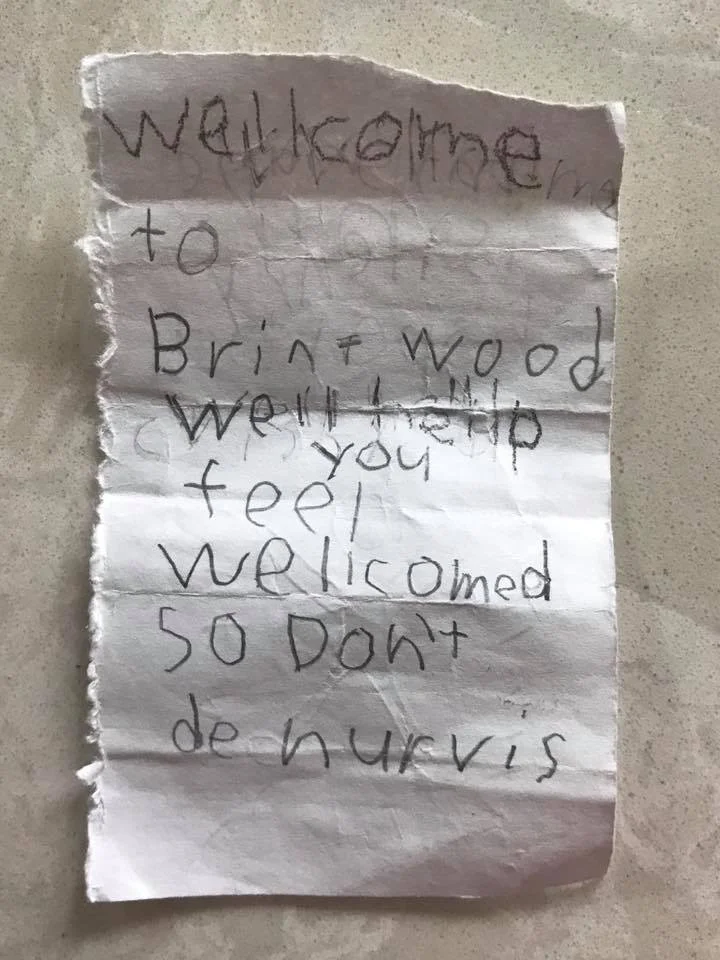 wellcome
to
Brint wood
we'll hellp
you
feel
wellcomed
so Don't
de nurvis